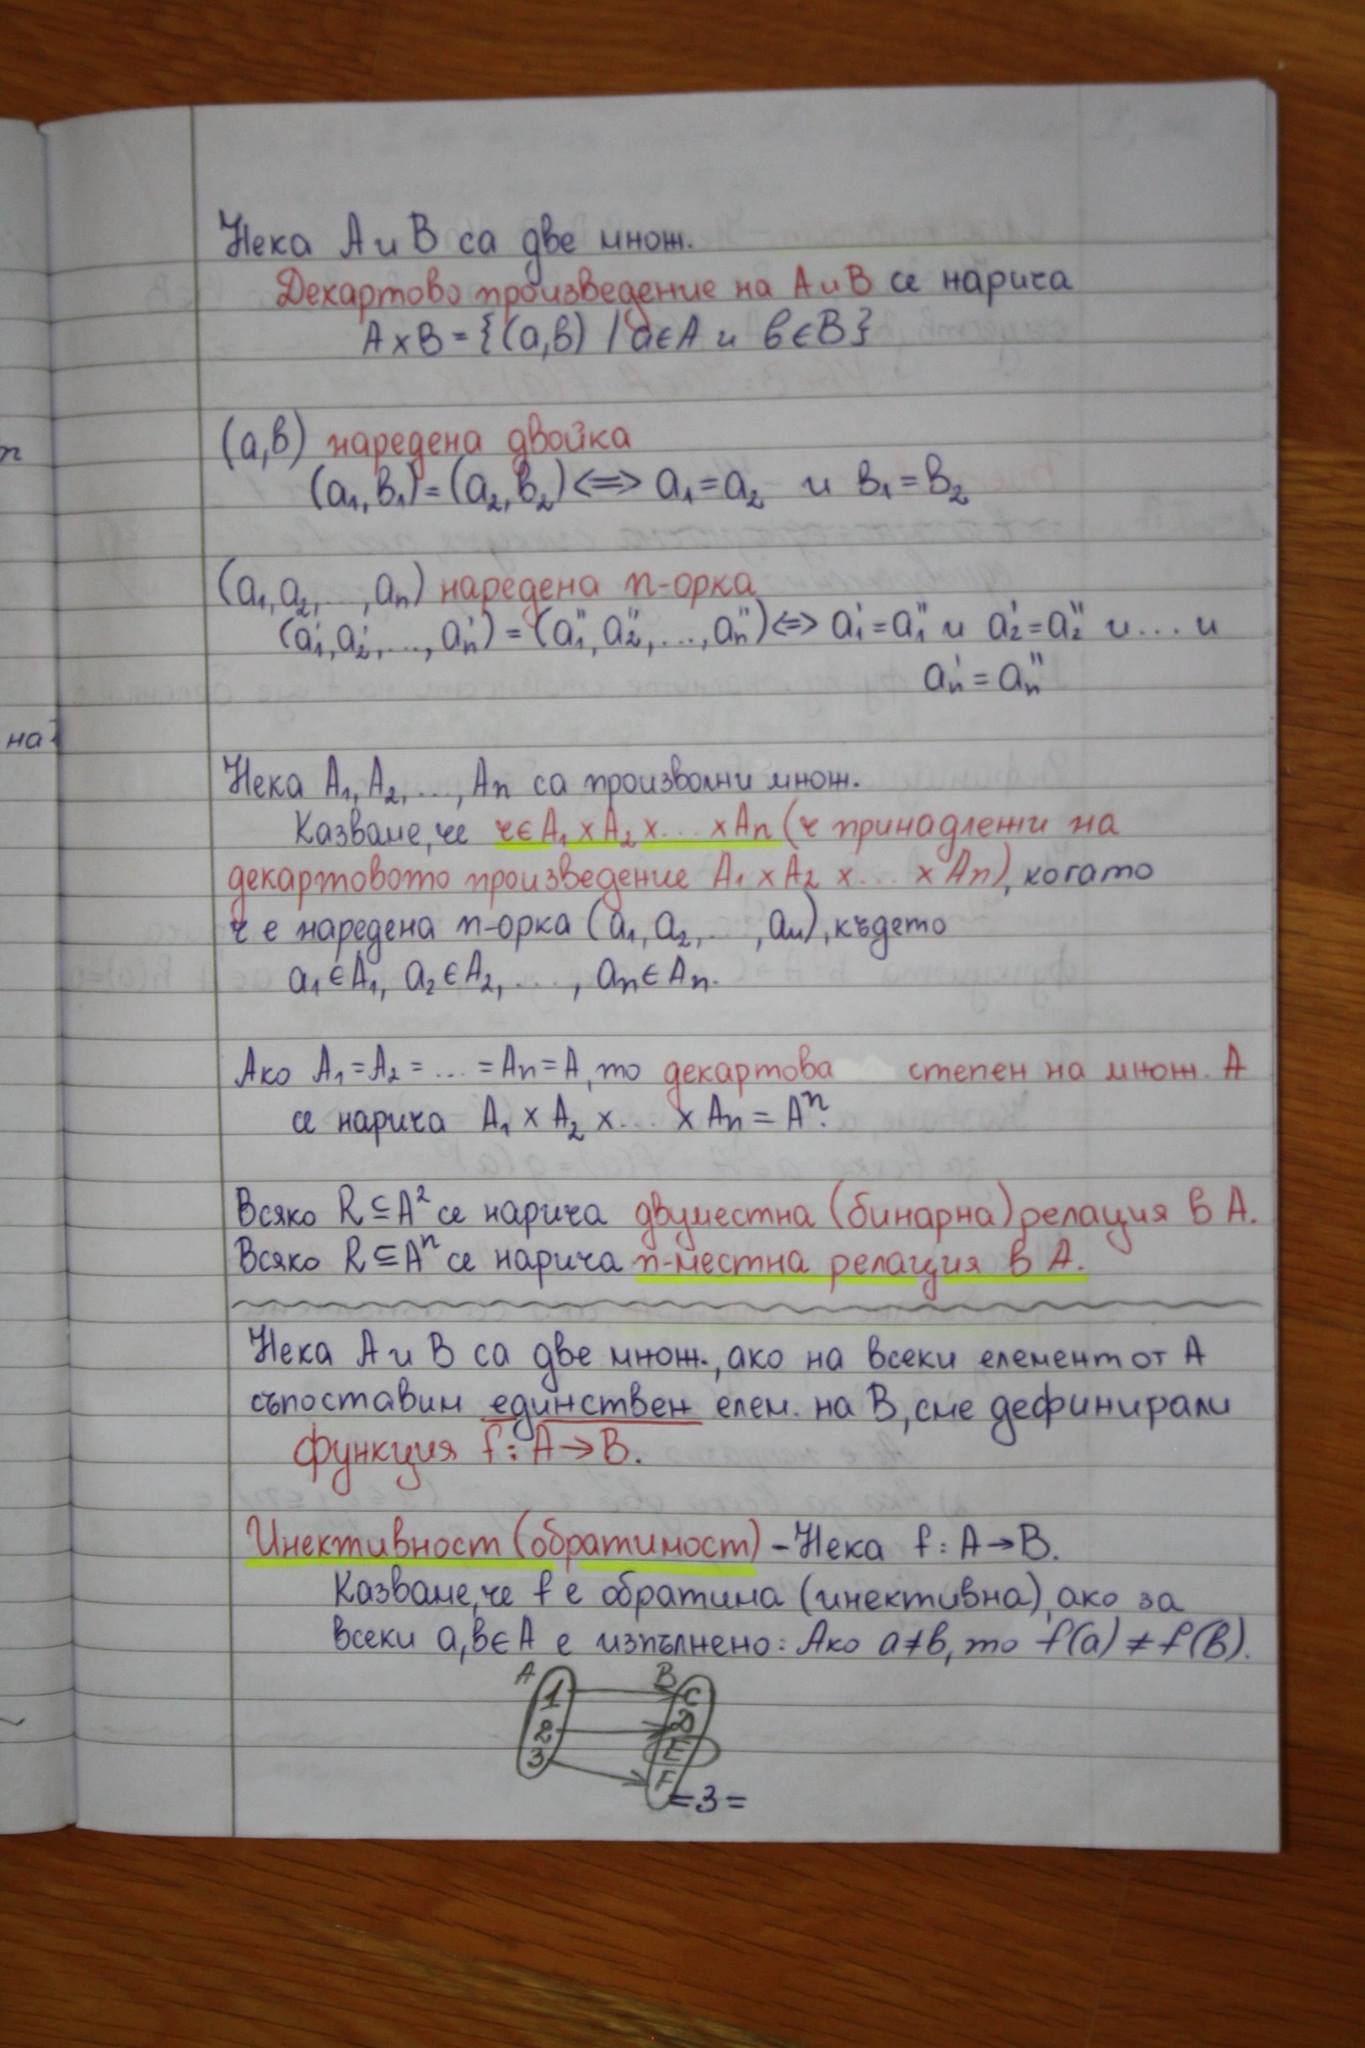 Нека A и B са две множ.
Декартово произведение на A и B се нарича
A x B = {(a,b) / a∈A и b∈B}
(a,b) наредена двойка
(a₁,b₁) = (a₂,b₂) <=> a₁ = a₂ и b₁ = b₂
(a₁, a₂, ..., aₙ) наредена n-орка
(a₁', a₂', ..., aₙ') = (a₁'', a₂'', ..., aₙ'') <=> a₁' = a₁'' и a₂' = a₂'' и ... и
aₙ' = aₙ''
на
Нека A₁, A₂, ..., Aₙ са произволни множ.
Казваме, че ч∈A₁ x A₂ x ... x Aₙ (ч принадлежи на
декартовото произведение A₁ x A₂ x ... x Aₙ), когато
ч е наредена n-орка (a₁, a₂, ..., aₙ), където
a₁∈A₁, a₂∈A₂, ..., aₙ∈Aₙ.
Ако A₁ = A₂ = ... = Aₙ = A, то декартова степен на множ. A
се нарича A₁ x A₂ x ... x Aₙ = Aⁿ.
Всяко R ⊆ A² се нарича двуместна (бинарна) релация в A.
Всяко R ⊆ Aⁿ се нарича n-местна релация в A.
Нека A и B са две множ., ако на всеки елемент от A
съпоставим единствен елем. на B, сме дефинирали
функция f: A → B.
Инективност (обратимост) - Нека f: A → B.
Казваме, че f е обратима (инективна), ако за
всеки a,b∈A е изпълнено: Ако a ≠ b, то f(a) ≠ f(b).
A B
1 C
2 D
E
3 F
=3=